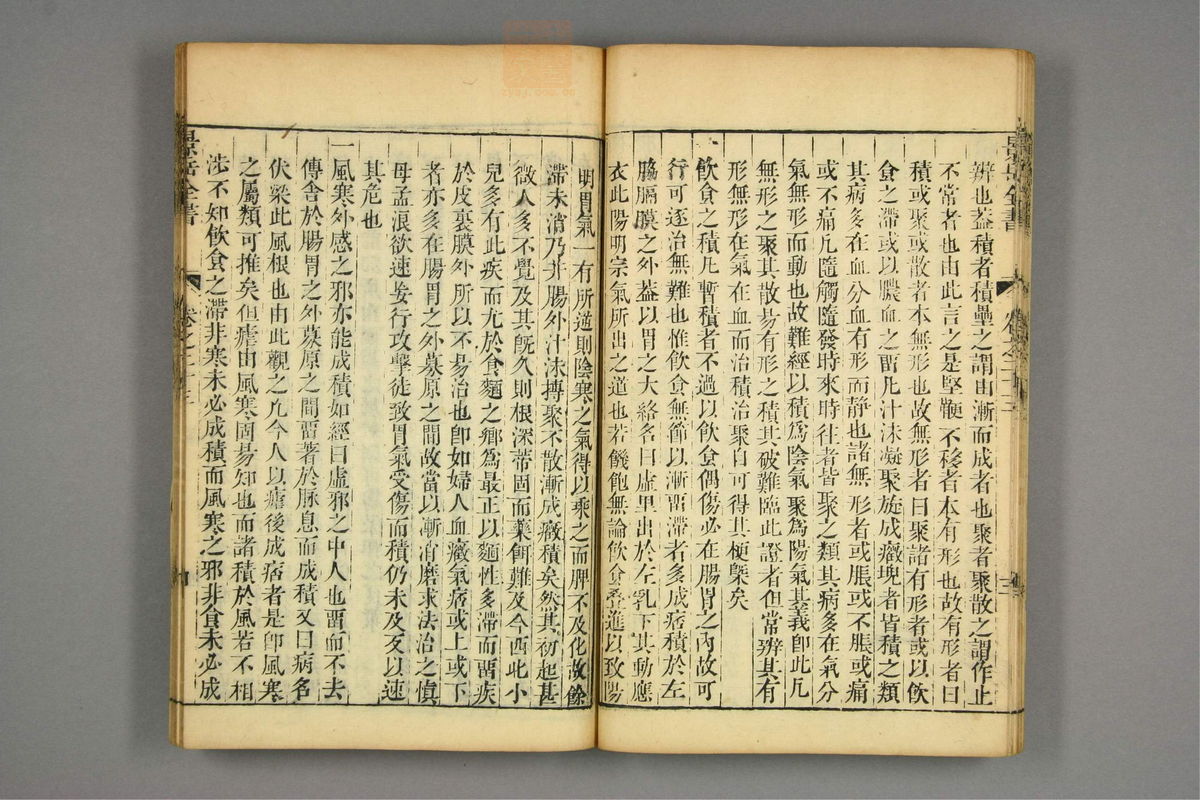 景岳全書
卷之二十三
辨也葢積者積壘之謂由漸而成者也聚者聚散之謂作止
不常者也由此言之是堅鞕不移者本有形也故有形者曰
積或聚或散者本無形也故無形者曰聚諸有形者或以飲
食之滯或以膿血之畱凡汁沫凝聚旋成癥塊者皆積之類
其病多在血分血有形而靜也諸無形者或脹或不脹或痛
或不痛凡隨觸隨發時來時往者皆聚之類其病多在氣分
氣無形而動也故難經以積爲陰氣聚爲陽氣其義卽此凡
無形之聚其散易有形之積其破難臨此證者但當辨其有
形無形在氣在血而治積治聚自可得其梗槩矣
飲食之積凡暫積者不過以飲食偶傷必在腸胃之內故可
行可逐治無難也惟飲食無節以漸畱滯者多成痞積於左
脇膈膜之外葢以胃之大絡名曰虛里出於左乳下其動應
衣此陽明宗氣所出之道也若饑飽無論飲食叠進以致陽
明胃氣一有所逆則陰寒之氣得以乘之而脾不及化故餘
滯未消乃并腸外汁沫搏聚不散漸成癥積矣然其初起甚
微人多不覺及其旣久則根深蒂固而藥餌難及今西北小
兒多有此疾而尤於食麵之鄉爲最正以麵性多滯而畱疾
於皮裏膜外所以不易治也卽如婦人血癥氣痞或上或下
者亦多在腸胃之外募原之間故當以漸消磨求法治之愼
毋孟浪欲速妄行攻擊徒致胃氣受傷而積仍未及反以速
其危也
一風寒外感之邪亦能成積如經曰虛邪之中人也畱而不去
傳舍於腸胃之外募原之間畱著於脉息而成積又曰病名
伏梁此風根也由此觀之凡今人以瘧後成痞者是卽風寒
之屬類可推矣但瘧由風寒固易知也而諸積於風若不相
涉不知飲食之滯非寒未必成積而風寒之邪非食未必成
景岳全書
卷之二十三